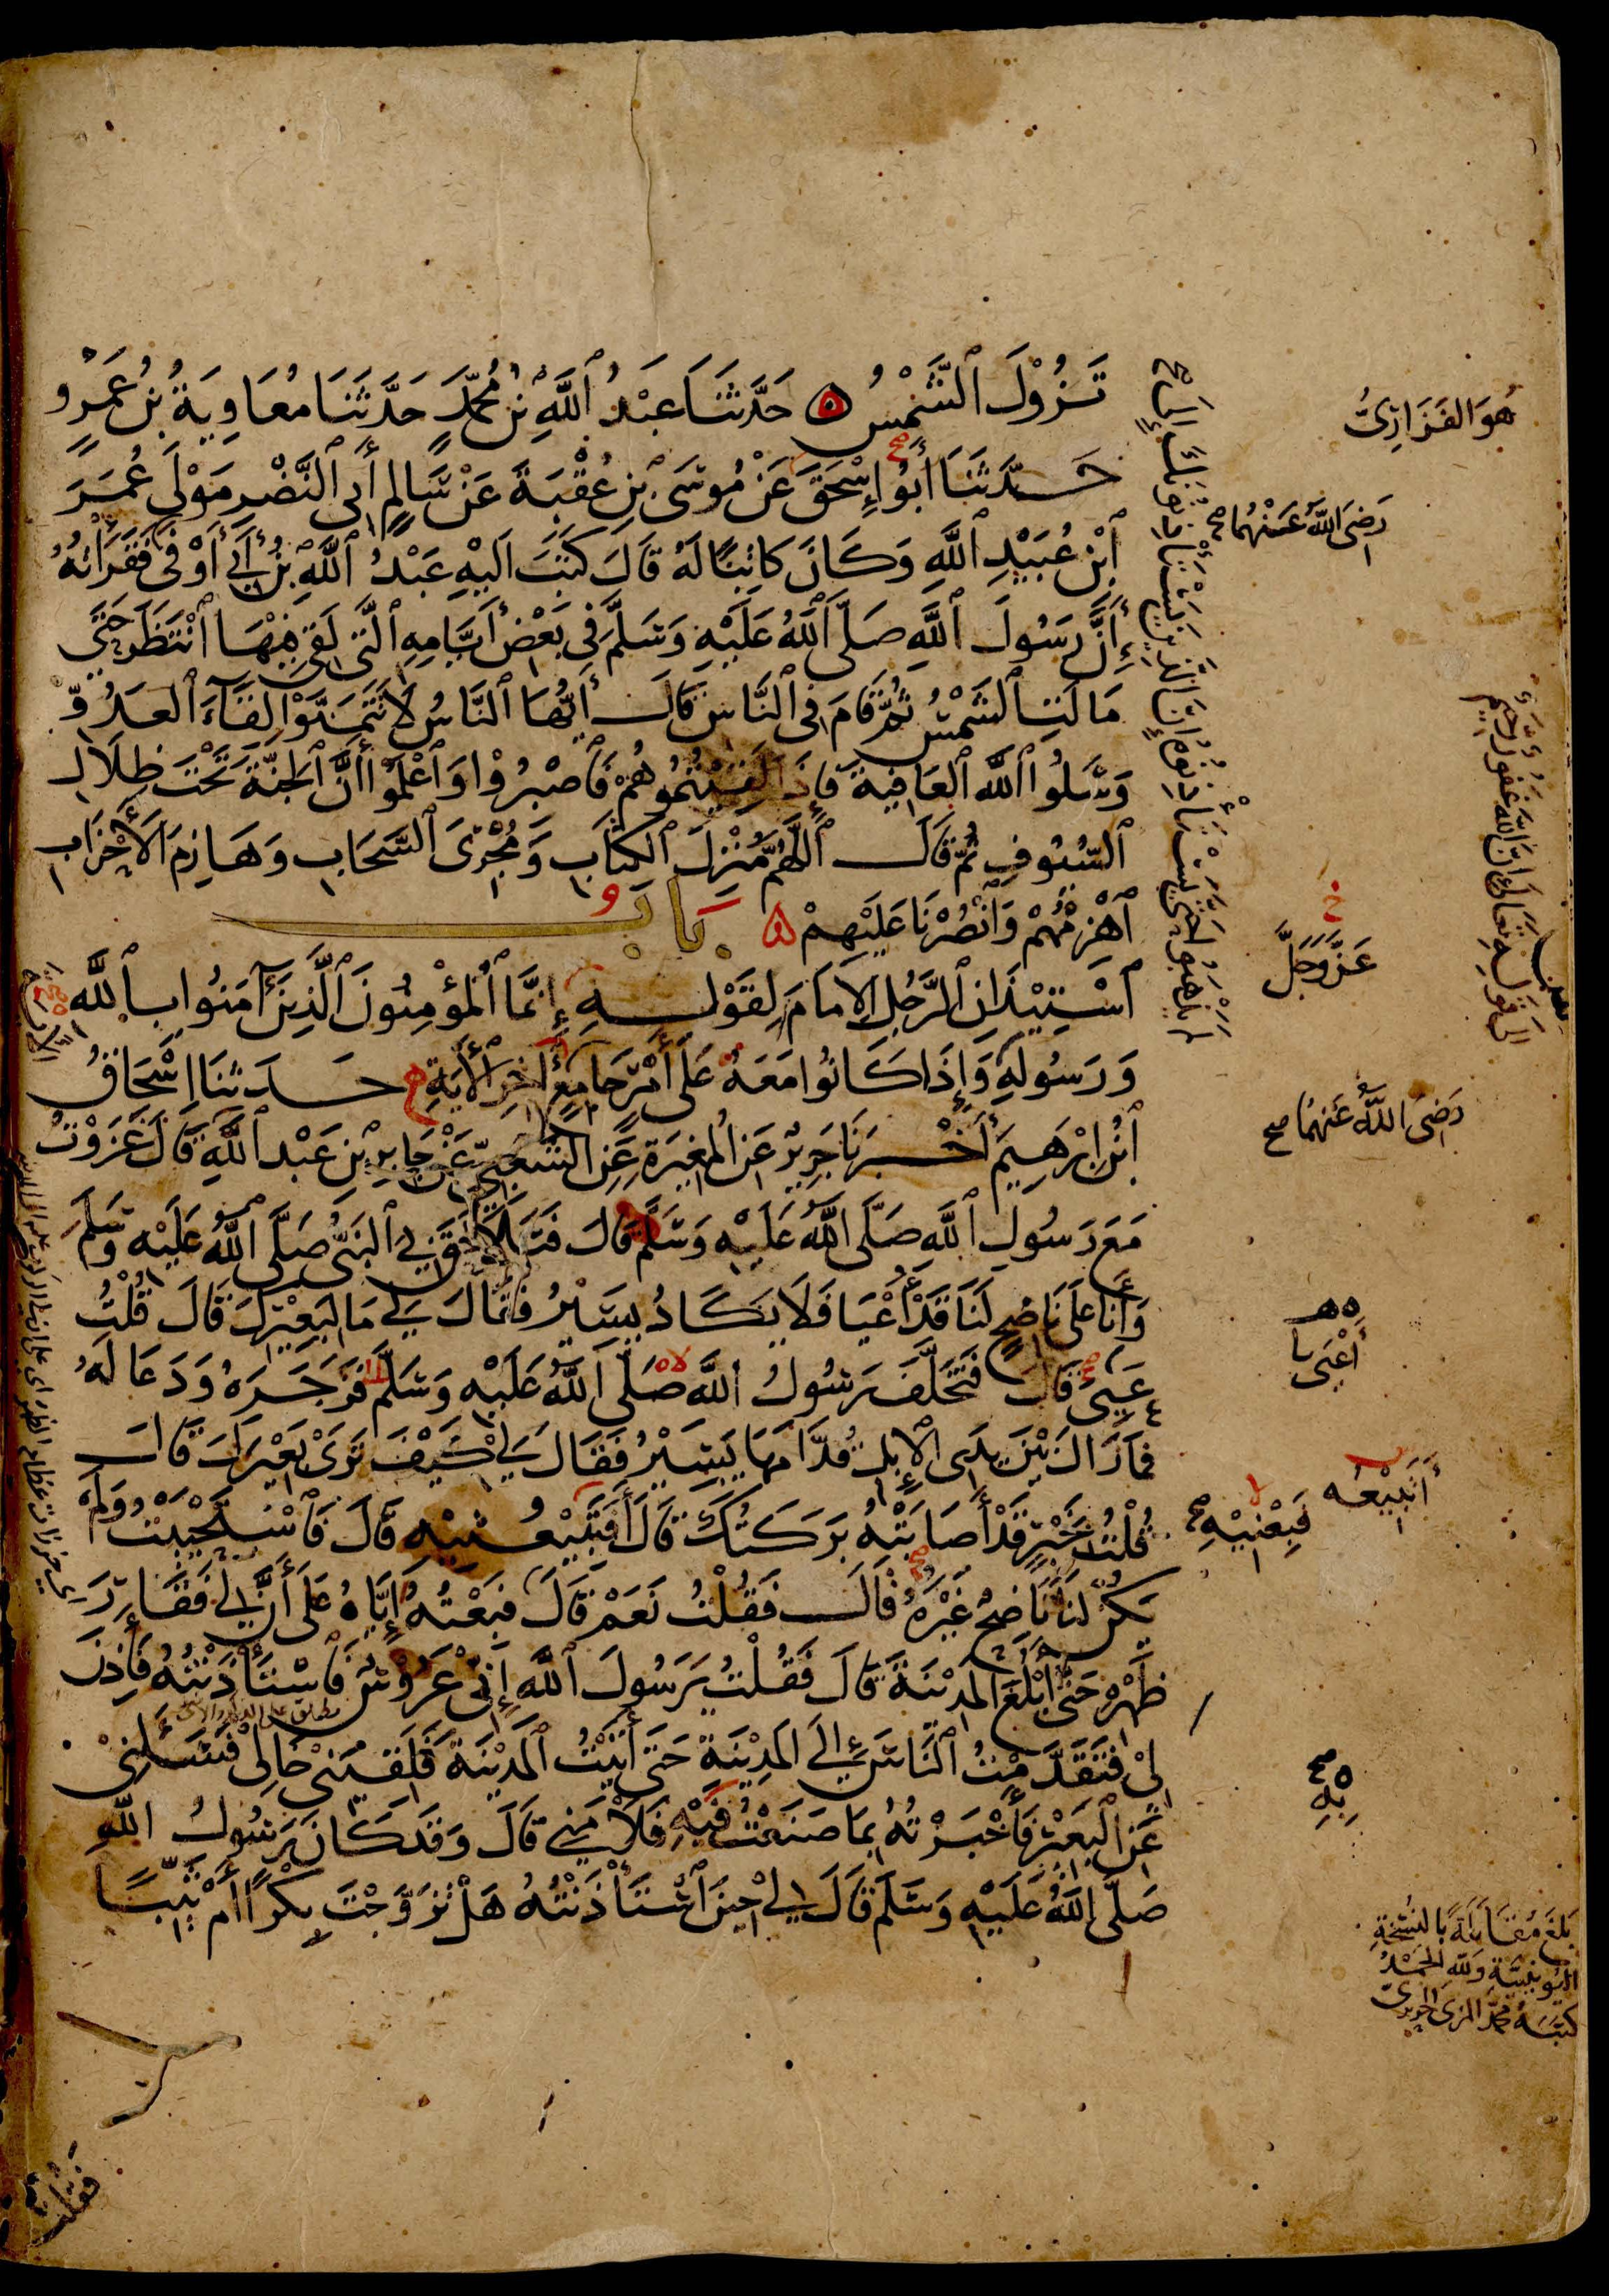 تَزُوْلَ ٱلشَّمْسُ ۵ حَدَّثَنَا عَبْدُ ٱللَّهِ بْنُ مُحَمَّدٍ حَدَّثَنَا مُعَاوِيَةُ بْنُ عَمْرٍو
حَدَّثَنَا أَبُو إِسْحَقَ عَنْ مُوسَى بْنِ عُقْبَةَ عَنْ سَالِمٍ أَبِى ٱلنَّضْرِ مَوْلَى عُمَرَ
ٱبْنِ عُبَيْدِ ٱللَّهِ وَكَانَ كَاتِبًا لَهُ قَالَ كَتَبَ اليْهِ عَبْدُ ٱللَّهِ بْنُ أَبِي أَوْفَى فَقَرَأْتُهُ
أَنَّ رَسُولَ ٱللَّهِ صَلَّى ٱللَّهُ عَلَيْهِ وَسَلَّمَ فِى بَعْضِ أَيَّامِهِ ٱلَّتِى لَقِىَ فِيْهَا ٱنْتَظَرَ حَتَّى
مَالَتِ ٱلشَّمْسُ ثُمَّ قَامَ فِى ٱلنَّاسِ قَالَ أَيُّهَا ٱلنَّاسُ لَا تَتَمَنَّوْا لِقَآءَ ٱلعَدُوِّ
وَسَلُوا ٱللَّهَ ٱلعَافِيَةَ فَإِذَا لَقِيْتُمُوهُمْ فَٱصْبِرُوْا وَٱعْلَمُوا أَنَّ ٱلجَنَّةَ تَحْتَ ظِلَالِ
ٱلسُّيُوفِ ثُمَّ قَالَ ٱللَّهُمَّ مُنْزِلَ ٱلكِتَابِ وَمُجْرِىَ ٱلسَّحَابِ وَهَازِمَ ٱلأَحْزَابِ
ٱهْزِمْهُمْ وَٱنْصُرْنَا عَلَيْهِمْ ۵ بَابُ
ٱسْتِيْذَانِ ٱلرَّجُلِ ٱلإِمَامَ لِقَوْلِهِ إِنَّمَا ٱلْمُؤْمِنُونَ ٱلَّذِينَ آمَنُوا بِٱللَّهِ
وَرَسُولِهِ وَإِذَا كَانُوا مَعَهُ عَلَى أَمْرٍ جَامِعٍ إِلَى آخِرِ ٱلأَيَةِ حَدثنَا إِسْحَاقُ
ٱبْنُ إِبْرَهِيمَ أَخْبَرَنَا جَرِيرٌ عَنِ المُغِيرَةِ عَنِ الشَّعْبِيِّ عَنْ جَابِرِ بْنِ عَبْدِ ٱللَّهِ قَالَ غَزَوْتُ
مَعَ رَسُولِ ٱللَّهِ صَلَّى ٱللَّهُ عَلَيْهِ وَسَلَّمَ قَالَ فَتَلَاحَقَ بِيَ ٱلنَّبِىُّ صَلَّى ٱللَّهُ عَلَيْهِ وَسَلَّمَ
وَأَنَا عَلَى نَاضِحٍ لَنَا قَدْ أَعْيَا فَلَا يَكَادُ يَسِيْرُ فَقَالَ لِي مَا لِبَعِيْرِكَ قَالَ قُلْتُ
عَيِىَ قَالَ فَتَخَلَّفَ رَسُولُ ٱللَّهِ صَلَّى ٱللَّهُ عَلَيْهِ وَسَلَّمَ فَزَجَرَهُ وَدَعَا لَهُ
فَمَا زَالَ بَيْنَ يَدَىِ الإِبِلِ قُدَّامَهَا يَسِيْرُ فَقَالَ لِي كَيْفَ تَرَىْ بَعِيْرَكَ قَالَ
قُلْتُ بِخَيْرٍ قَدْ أَصَابَتْهُ بَرَكَتُكَ قَالَ أَفَتَبِيْعُنِيْهِ قَالَ فَٱسْتَحْيَيْتُ وَلَمْ
يَكُنْ لَنَا نَاضِحٌ غَيْرَهُ قَالَ فَقُلْتُ نَعَمْ قَالَ فَبِعْتُهُ إِيَّاهُ عَلَى أَنَّ لِي فَقَارَ
ظَهْرِهِ حَتَّى أَبْلُغَ الْمَدِيْنَةَ قَالَ فَقُلْتُ يَرَسُولَ ٱللَّهِ إِنِّى عَرُوْسٌ فَٱسْتَأْذَنْتُهُ فَأَذِنَ
لِىْ فَتَقَدَّمْتُ ٱلنَّاسَ إِلَى الْمَدِيْنَةِ حَتَّى أَتَيْتُ ٱلْمَدِيْنَةَ فَلَقِيَنِى خَالِى فَسَأَلَنِىْ
عَنِ ٱلْبَعِيْرِ فَأَخْبَرْتُهُ بِمَا صَنَعْتُ فِيْهِ فَلَامَنِي قَالَ وَقَدْ كَانَ رَسُولُ اللَّهِ
صَلَّى اللَّهُ عَلَيْهِ وَسَلَّمَ قَالَ لِي حِيْنَ ٱسْتَأْذَنْتُهُ هَلْ تَزَوَّجْتَ بِكْرًا أَمْ ثَيِّبًا
هُوَ الفَزَارِىُّ
رَضِىَ اللَّهُ عَنْهُمَا صح
عَزَّ وَجَلَّ
رَضِىَ اللَّهُ عَنْهُمَا صح
أَعْيَى
أَتَبِيْعُه
فَبِعْنِيْهِ صح
بِهِ
بَلَغَ مُقَابَلَةً بِالنُّسْخَةِ
اليُونِينِيَّةِ وَلِلَّهِ الحَمْدُ
كَتَبَهُ مُحَمَّد المزى الحريرىّ
إِلَى قَوْلِهِ تَعَالَى إِنَّ اللَّهَ غَفُورٌ رَحِيمٌ